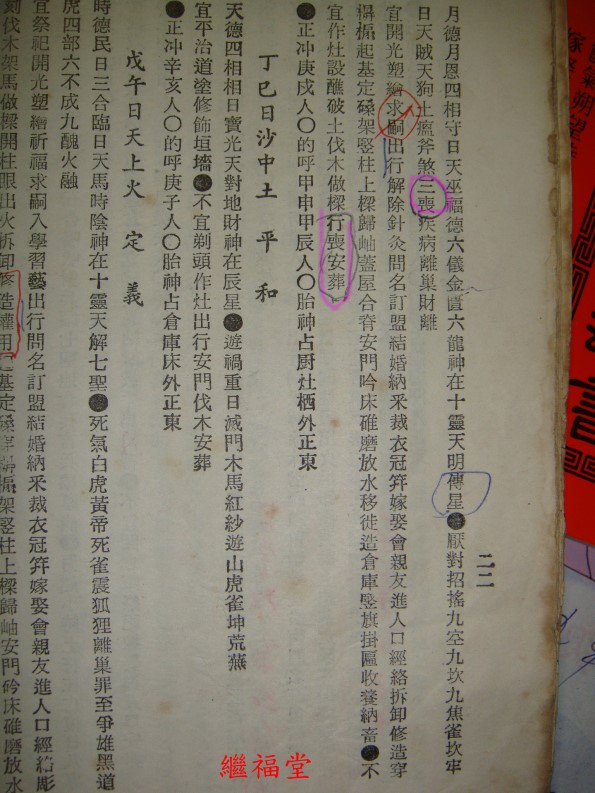 二二
月德月恩四相守日天巫福德六儀金匱六龍神在十靈天明傳星●厭對招搖九空九坎九焦雀坎牢
日天賊天狗土瘟斧煞三喪疾病離巢財離
宜開光塑繪求嗣出行解除針灸問名訂盟結婚納釆裁衣冠笄嫁娶會親友進人口經絡拆卸修造穿
梔起基定磉架竪柱上樑歸岫蓋屋合脊安門吟床碓磨放水移徙造倉庫竪旗掛匾收養納畜●不
宜作灶設醮破土伐木做樑行喪安葬
●正冲庚戌人〇的呼甲申甲辰人〇胎神占厨灶栖外正東
丁巳日沙中土 平 和
天德四相相日寶光天對地財神在辰星●遊禍重日滅門木馬紅紗遊山虎雀坤荒蕪
宜平治道塗修飾垣墻●不宜剃頭作灶出行安門伐木安葬
●正冲辛亥人〇的呼庚子人〇胎神占倉庫床外正東
戊午日天上火 定 義
時德民日三合臨日天馬時陰神在十靈天解七聖●死氣白虎黃帝死雀震狐狸離巢罪至爭雄黑道
虎四部六不成九醜火融
宜祭祀開光塑繪祈福求嗣入學習藝出行問名訂盟結婚納釆裁衣冠笄嫁娶會親友進人口經絡彫
刻伐木架馬做樑開柱眼出火拆卸修造 基定磉 架竪柱上樑歸岫安門吟床碓磨放水
繼福堂